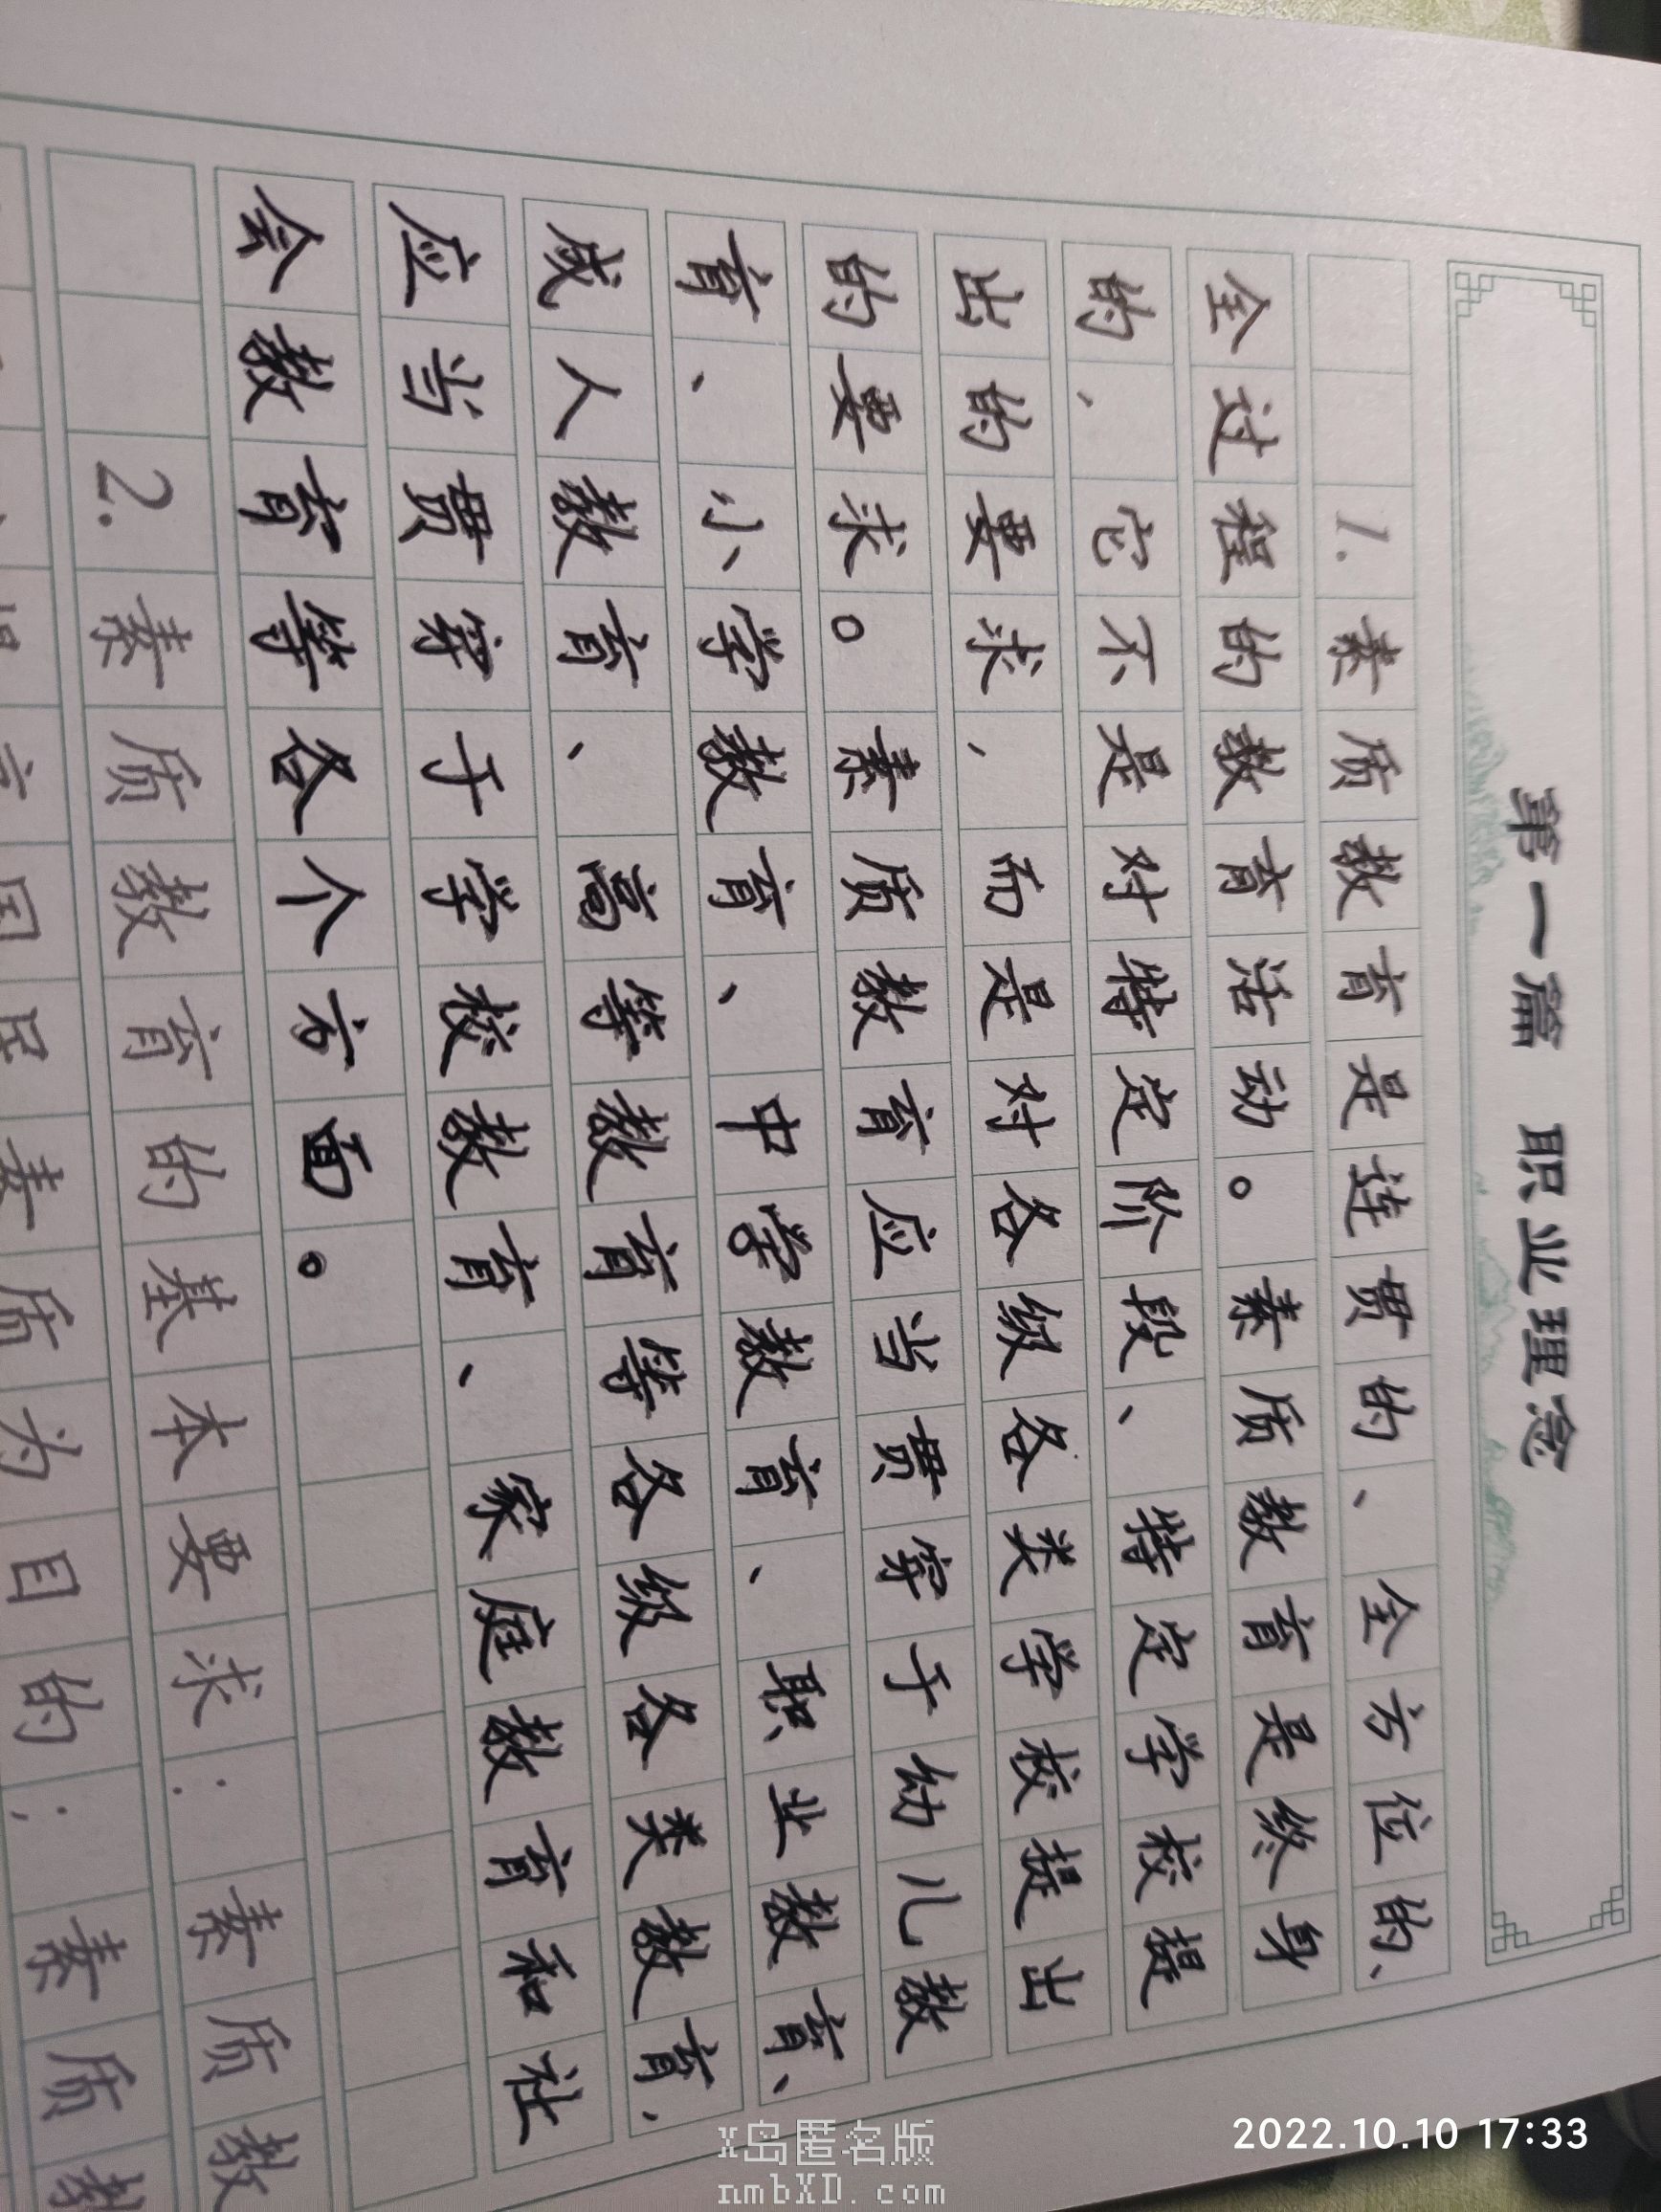 第一篇 职业理念
1.素质教育是连贯的、全方位的、
全过程的教育活动。素质教育是终身
的,它不是对特定阶段、特定学校提
出的要求,而是对各级各类学校提出
的要求。素质教育应当贯穿于幼儿教
育、小学教育、中学教育、职业教育、
成人教育、高等教育等各级各类教育,
应当贯穿于学校教育、家庭教育和社
会教育等各个方面。
2.素质教育的基本要求:素质教
国民素质为目的;素质教
2022.10.10 17:33
X岛匿名版
nmbXD.com